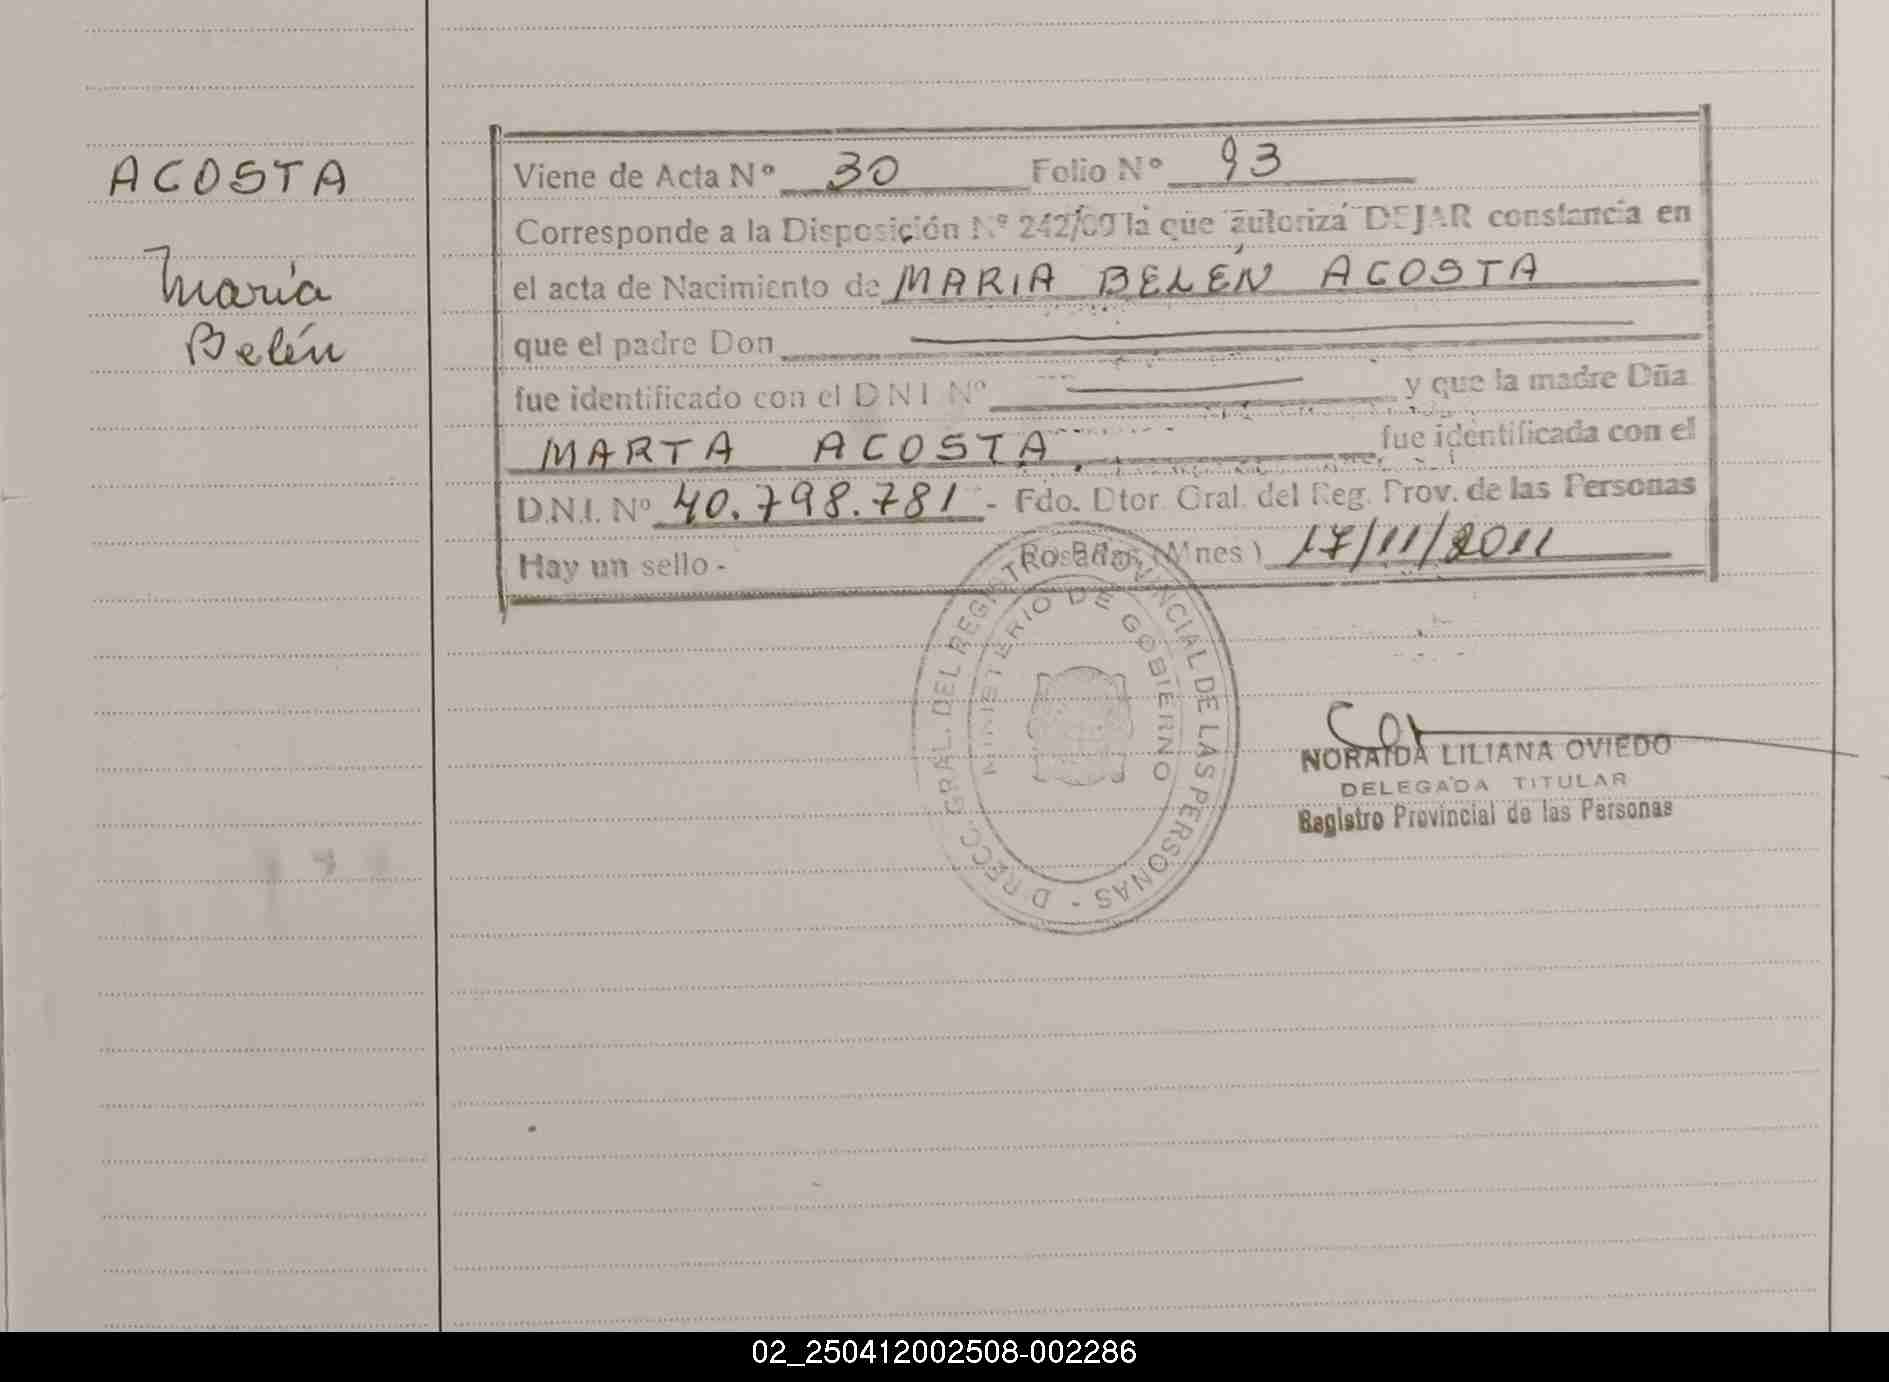 ACOSTA
María
Belén
Viene de Acta Nº 30 Folio Nº 93
Corresponde a la Disposición Nº 242/09 la que autoriza DEJAR constancia en
el acta de Nacimiento de MARIA BELÉN ACOSTA
que el padre Don
fue identificado con el D N I Nº y que la madre Dña
MARTA ACOSTA fue identificada con el
D.N.I. Nº 40.798.781 - Fdo. Dtor. Gral. del Reg. Prov. de las Personas
Hay un sello - (Mnes) 17/11/2011
DIRECC. GRAL. DEL REGISTRO PROVINCIAL DE LAS PERSONAS -
MINISTERIO DE GOBIERNO
NORAIDA LILIANA OVIEDO
DELEGADA TITULAR
Registro Provincial de las Personas
02_250412002508-002286